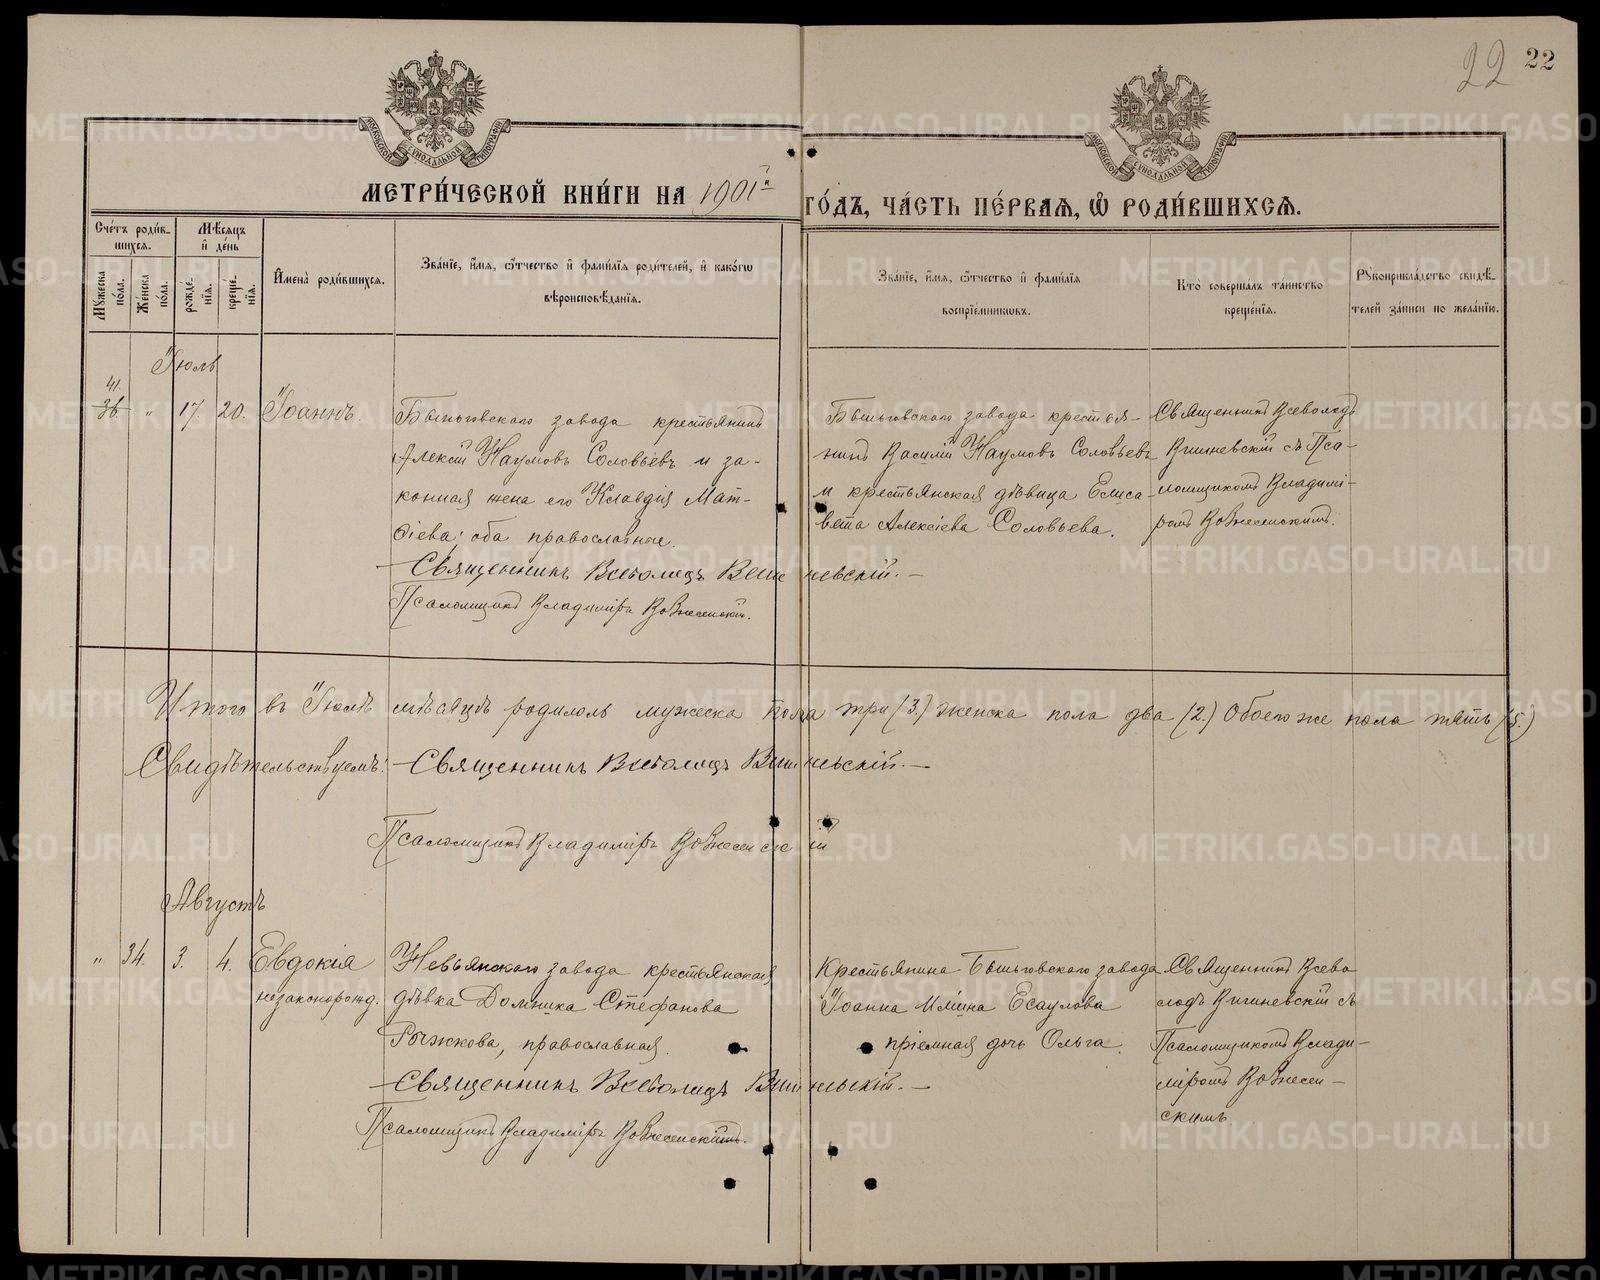 22 22
МОСКОВСКОЙ СѴНОДАЛЬНОЙ ТИПОГРАФІИ
МОСКОВСКОЙ СѴНОДАЛЬНОЙ ТИПОГРАФІИ
МЕТРИ́ЧЕСКОЙ КНИ́ГИ НА 1901й ГО́ДЪ, ЧА́СТЬ ПЕ́РВАѦ, Ѡ҆ РОДИ́ВШИХСѦ.
Сче́тъ роди́в-
шихсѧ.
Мꙋжеска по́ла.
Же́нска по́ла.
Мѣ́сѧцъ
и҆ де́нь
рожде́-
нїѧ.
креще́-
нїѧ.
И҆мена̀ роди́вшихсѧ.
Зва́нїе, и҆́мѧ, ѻ҆́тчество и҆ фамилїѧ роди́телей, и҆ како́гѡ
вѣроисповѣ́данїѧ.
Зва́нїе, и҆́мѧ, ѻ҆́тчество и҆ фамилїѧ
воспрїе́мникѡвъ.
Кто̀ соверша́лъ та́инство
креще́нїѧ.
Рꙋкоприкла́дство свидѣ́-
телей за́писи по жела́нїю.
Іюль
41.
36. „ 17. 20. Іоаннъ.
Быньговскаго завода крестьянинъ
Алексій Наумовъ Соловьевъ и за-
конная жена его Клавдія Мат-
ѳіева; оба православные.
Священникъ Всеволодъ Вишневскій.
Псаломщикъ Владиміръ Вознесенскій.
Быньговскаго завода крестья-
нинъ Василій Наумовъ Соловьевъ
и крестьянская дѣвица Елиса-
вета Алексіева Соловьева.
Священникъ Всеволодъ
Вишневскій съ Пса-
ломщикомъ Владимі-
ромъ Вознесенскимъ.
Итого въ Іюлѣ мѣсяцѣ родилось мужеска пола три (3.) женска пола два (2.) Обоего же пола пять (5.)
Свидѣтельствуемъ: Священникъ Всеволодъ Вишневскій.
Псаломщикъ Владиміръ Вознесенскій
Августъ
„ 34. 3. 4. Евдокія
незаконорожд.
Невьянскаго завода крестьянская
дѣвка Домника Стефанова
Рыжкова, православная.
Священникъ Всеволодъ Вишневскій.
Псаломщикъ Владиміръ Вознесенскій.
Крестьянина Быньговскаго завода
Іоанна Иліина Есаулова
пріемная дочь Ольга.
Священникъ Всево
лодъ Вишневскій съ
Псаломщикомъ Влади-
міромъ Вознесен-
скимъ
METRIKI.GASO-URAL.RU